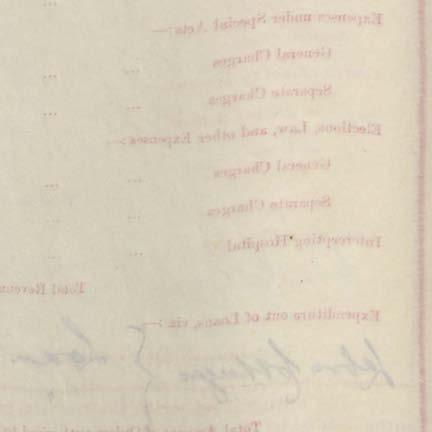 Expenses under Special Acts:—
General Charges ... ...
Separate Charges ... ...
Elections, Law, and other Expenses:—
General Charges ... ...
Separate Charges ... ...
Intercepting Hospital ... ...
Total Revenu
Expenditure out of Loans, viz :—
Loan